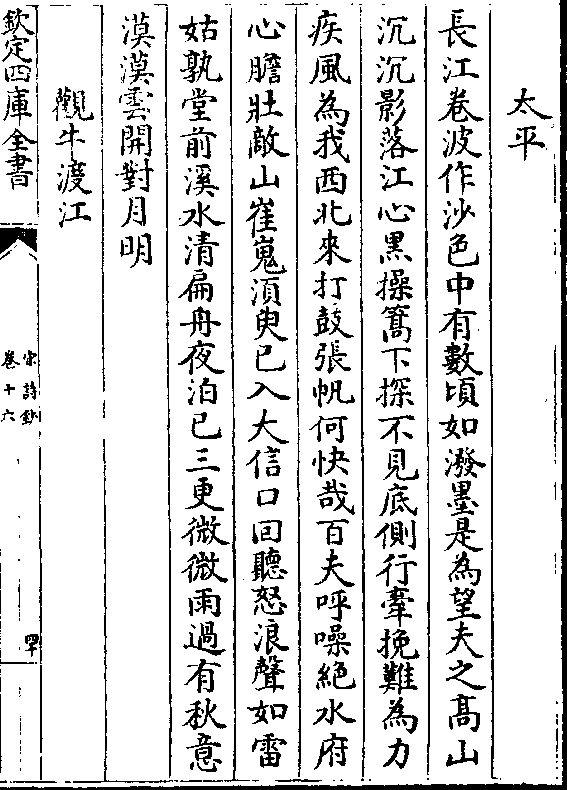 太平
長江卷波作沙色中有數頃如潑墨是為望夫之髙山
沉沉影落江心黒操篙下探不見底側行牽挽難為力
疾風為我西北來打鼓張帆何快哉百夫呼噪絕水府
心膽壯敵山崔嵬湏臾已入大信口回聽怒浪聲如雷
姑孰堂前溪水清扁舟夜泊已三更微微雨過有秋意
漠漠雲開對月明
觀牛渡江
欽定四庫全書
宋詩鈔
卷十六